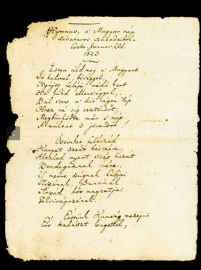 Hymnus, a' Magyar nép
zivataros századaiból.
Cseke, Januar. 22d.
1823.
Isten áldd meg a' Magyart
Jó kedvvel, bőséggel,
Nyújts feléje védő kart
Ha küzd ellenséggel;
Bal sors a' kit régen tép,
Hozz rá víg esztendőt,
Megbűnhödte már e' nép
A' multat 's jövendőt!
Őseinket felhozád
Kárpát szent bérczére,
Általad nyert szép hazát
Bendegúznak vére,
'S merre zúgnak habjai
Tiszának, Dunának,
Árpád hős magzatjai
Felvirágozának.
Értünk Kunság mezein
Ért kalászt lengettél,